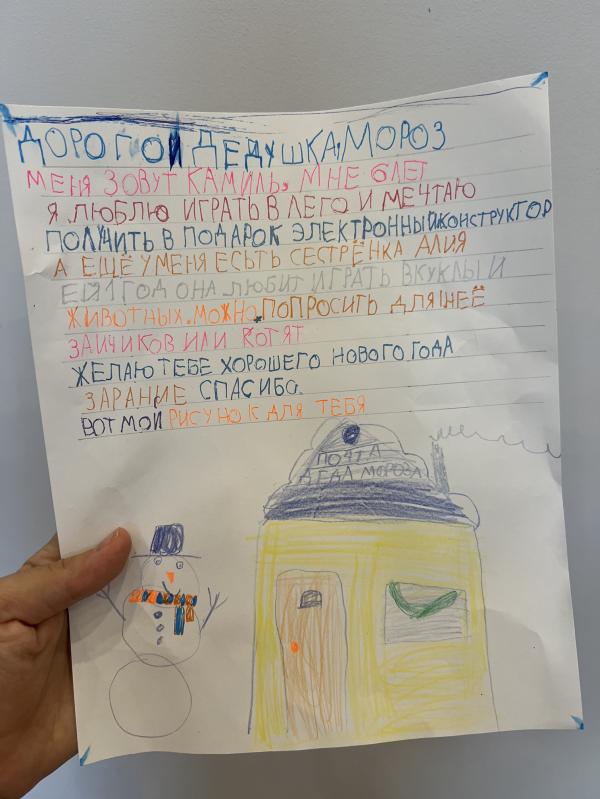 ДОРОГОЙ ДЕДУШКА, МОРОЗ
МЕНЯ ЗОВУТ КАМИЛЬ, МНЕ 6 ЛЕТ
Я ЛЮБЛЮ ИГРАТЬ В ЛЕГО И МЕЧТАЮ
ПОЛУЧИТЬ В ПОДАРОК ЭЛЕКТРОННЫЙ КОНСТРУКТОР
А ЕЩЁ У МЕНЯ ЕСЬТЬ СЕСТРЁНКА АЛИЯ
ЕЙ 1 ГОД ОНА ЛЮБИТ ИГРАТЬ В КУКЛЫ И
ЖИВОТНЫХ. МОЖНО ПОПРОСИТЬ ДЛЯ НЕЁ
ЗАИЧИКОВ ИЛИ КОТЯТ
ЖЕЛАЮ ТЕБЕ ХОРОШЕГО НОВОГО ГОДА
ЗАРАНИЕ СПАСИБО.
ВОТ МОЙ РИСУНОК ДЛЯ ТЕБЯ
ПОЧТА
ДЕДА МОРОЗА